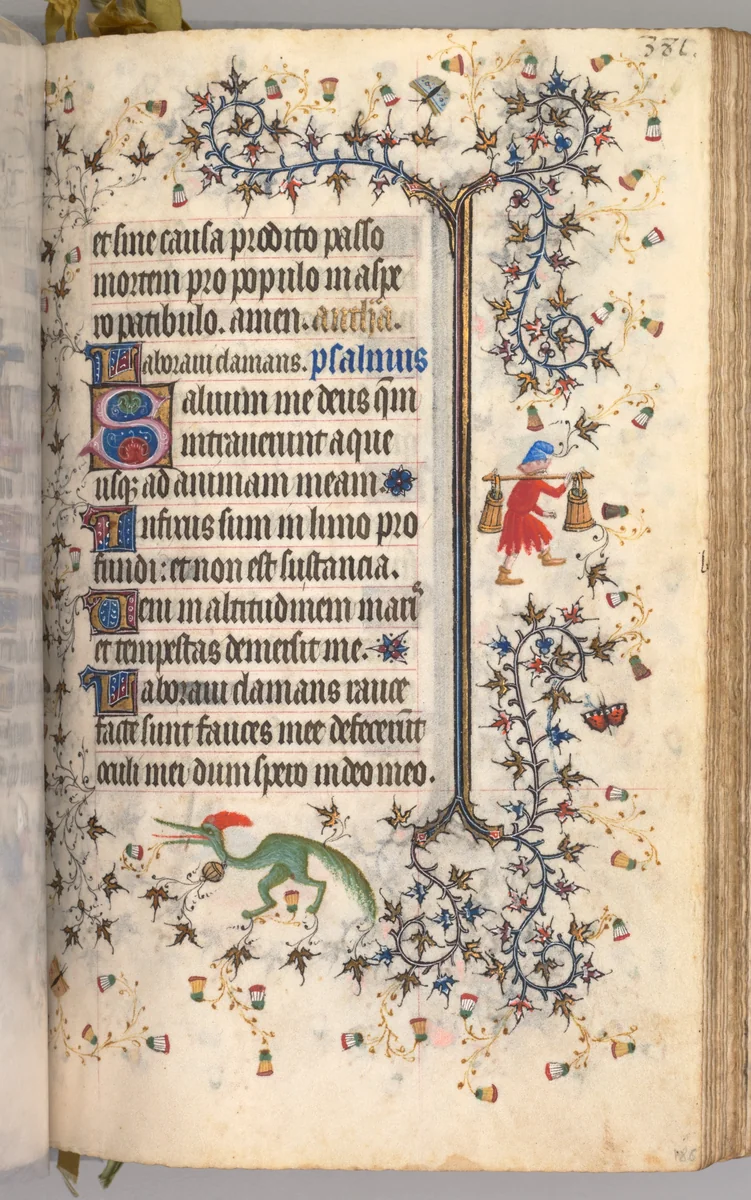 381.
et sine causa prodito passo
mortem pro populo in aspe
ro patibulo. amen. antħa.
Laboraui clamans. psalmus
Saluum me deus qm̄
intrauerunt aque
usq; ad animam meam
Infixus sum in limo pro
fundi: et non est sustancia.
Veni in altitudinem mariˢ
et tempestas demersit me.
Laboraui clamans rauce
facte sunt fauces mee defecerūt
oculi mei dum spero in deo meo.
186